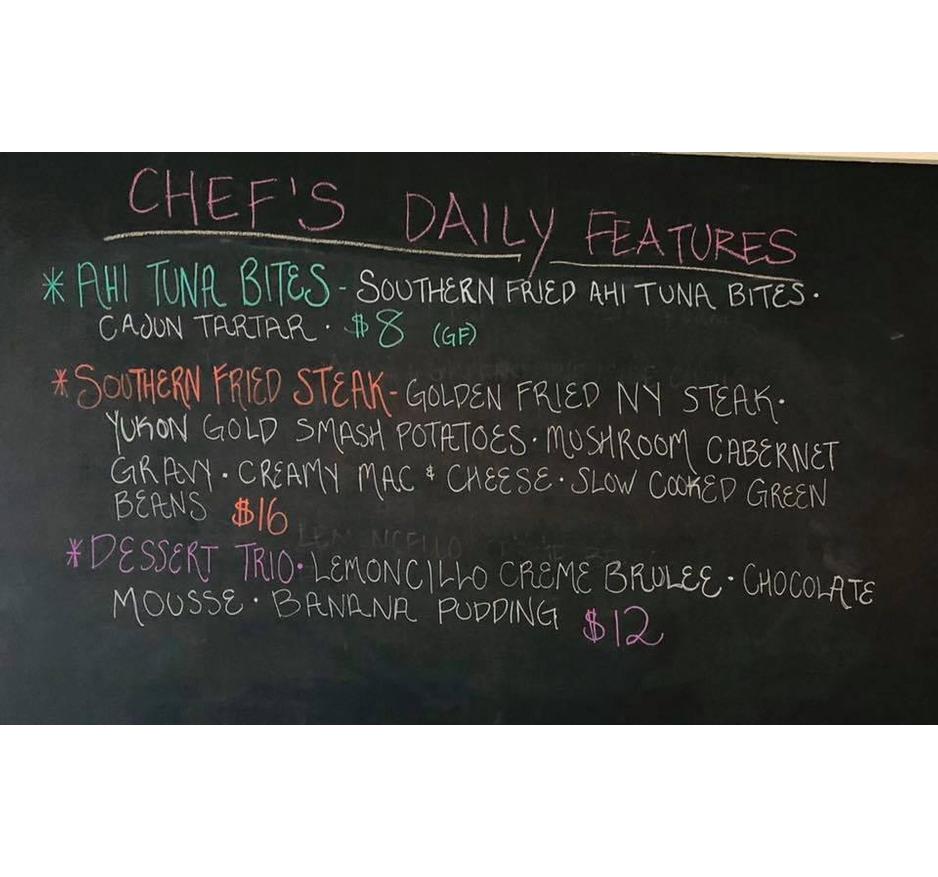 CHEF'S DAILY FEATURES
* AHI TUNA BITES - SOUTHERN FRIED AHI TUNA BITES.
CAJUN TARTAR. $8 (GF)
* SOUTHERN FRIED STEAK - GOLDEN FRIED NY STEAK.
YUKON GOLD SMASH POTATOES. MUSHROOM CABERNET
GRAVY. CREAMY MAC & CHEESE. SLOW COOKED GREEN
BEANS $16
* DESSERT TRIO. LEMONCILLO CREME BRULEE. CHOCOLATE
MOUSSE. BANANA PUDDING $12